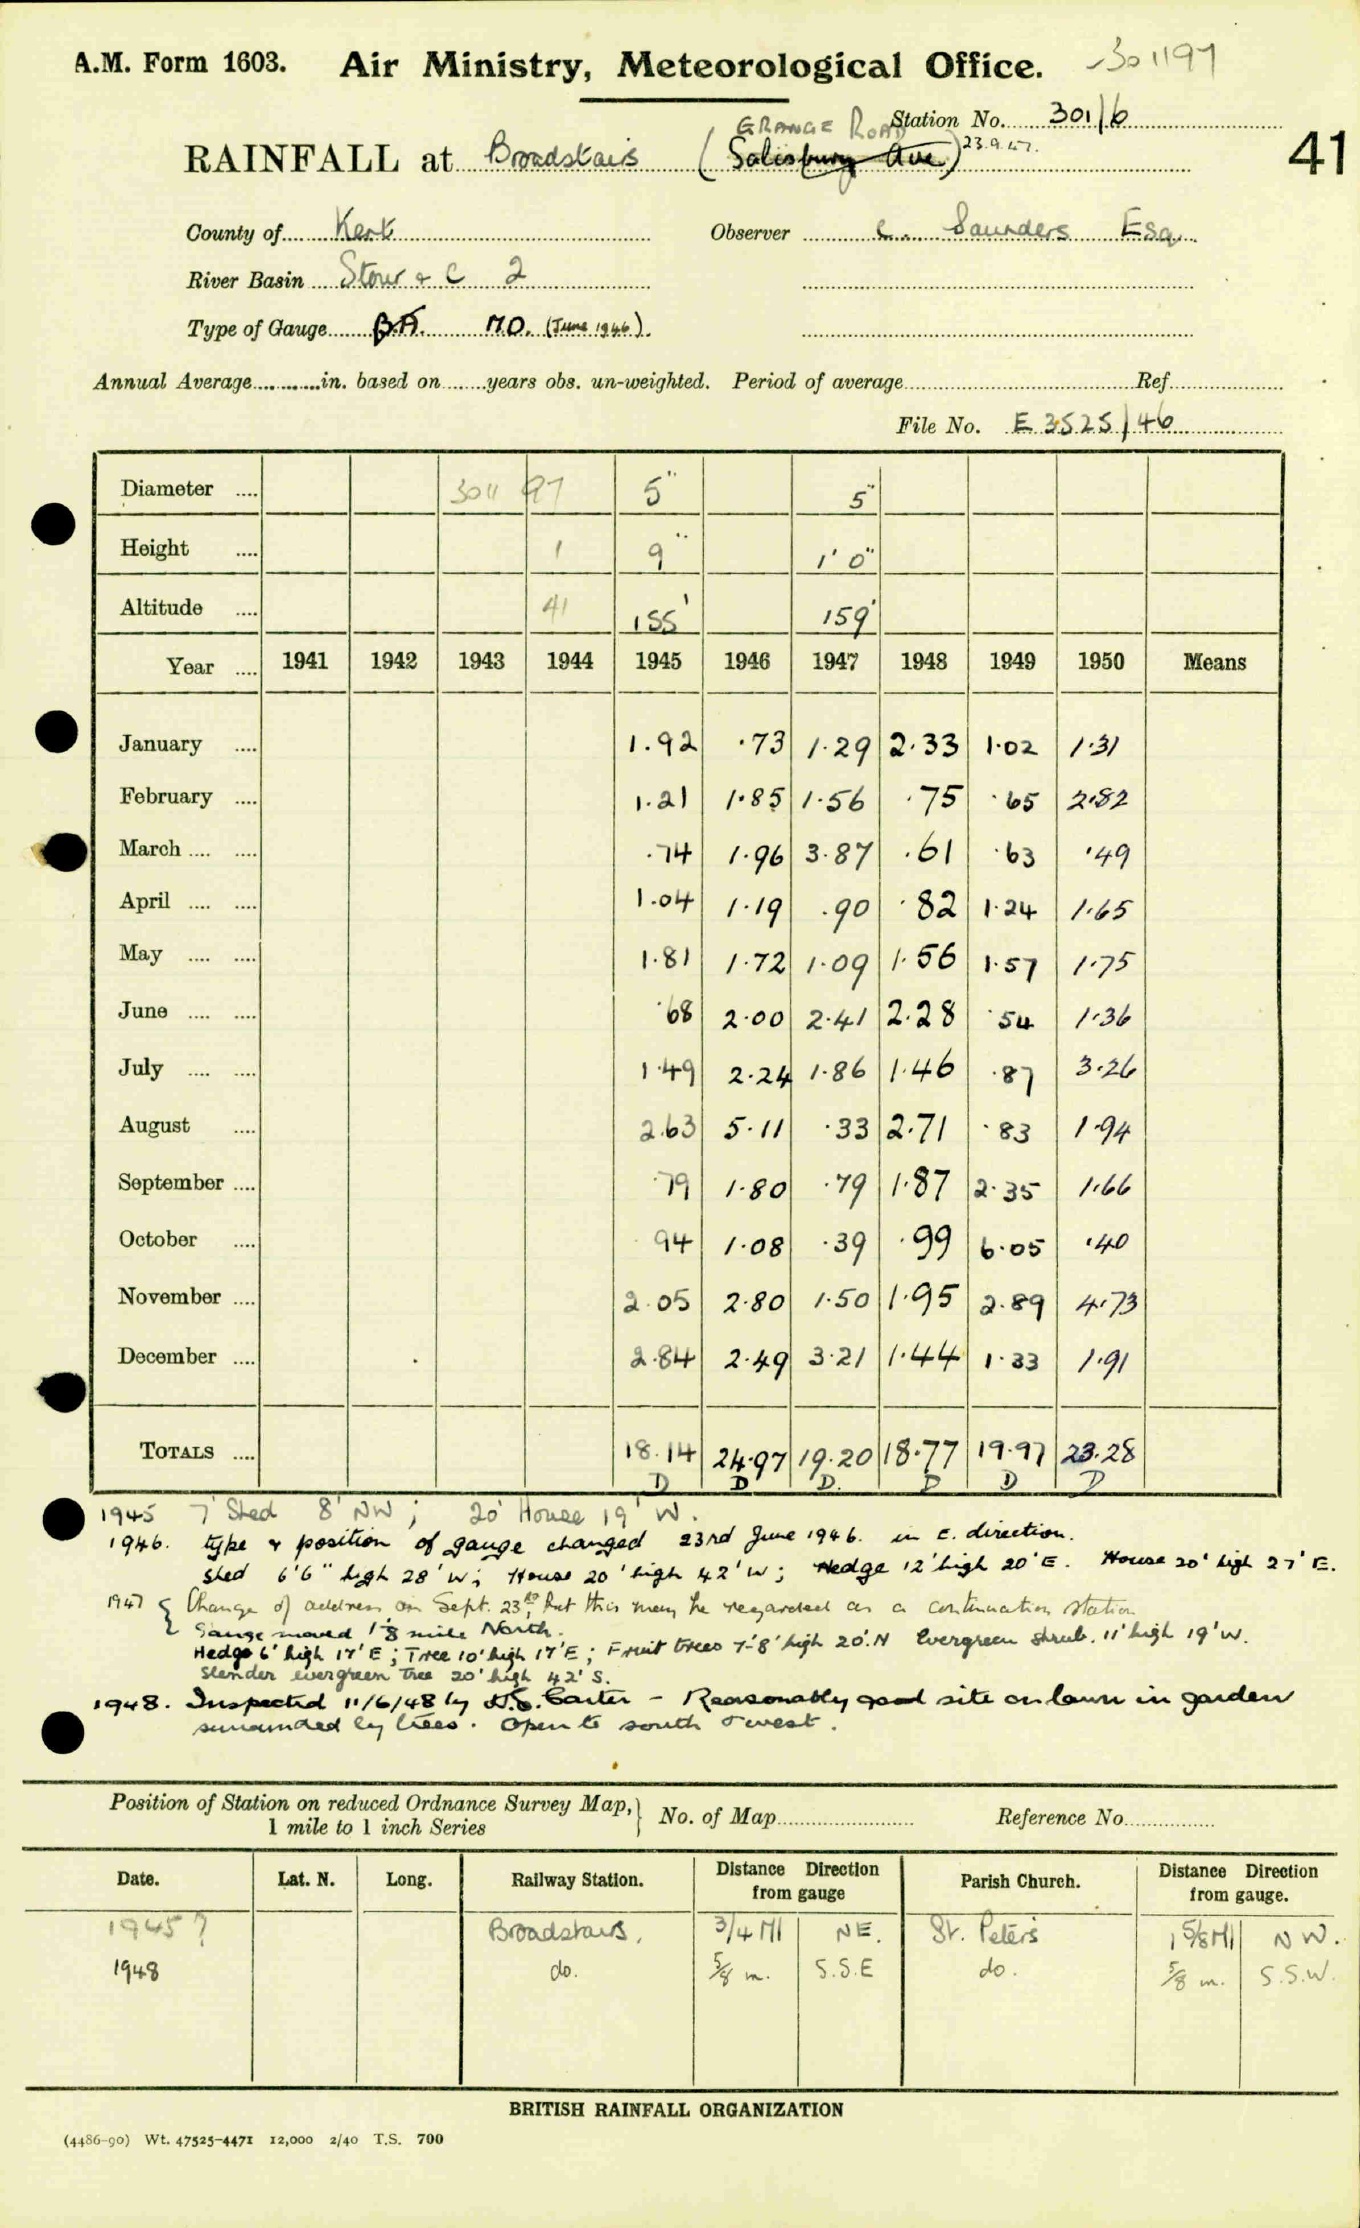 A.M. Form 1603. Air Ministry, Meteorological Office. 301197
Station No. 301/6
GRANGE ROAD
RAINFALL at Broadstairs (Salisbury Ave.) 23.9.47.
41
County of Kent Observer C. Saunders Esq
River Basin Stour & C 2
Type of Gauge B.A. M.O. (June 1946)
Annual Average in. based on years obs. un-weighted. Period of average Ref
File No. E 3525/46
Diameter 3011 97 5" 5"
Height 1 9" 1' 0"
Altitude 41 155' 159'
Year 1941 1942 1943 1944 1945 1946 1947 1948 1949 1950 Means
January 1.92 .73 1.29 2.33 1.02 1.31
February 1.21 1.85 1.56 .75 .65 2.82
March .74 1.96 3.87 .61 .63 .49
April 1.04 1.19 .90 .82 1.24 1.65
May 1.81 1.72 1.09 1.56 1.57 1.75
June .68 2.00 2.41 2.28 .54 1.36
July 1.49 2.24 1.86 1.46 .87 3.26
August 2.63 5.11 .33 2.71 .83 1.94
September .79 1.80 .79 1.87 2.35 1.66
October .94 1.08 .39 .99 6.05 .40
November 2.05 2.80 1.50 1.95 2.89 4.73
December 2.84 2.49 3.21 1.44 1.33 1.91
TOTALS 18.14 24.97 19.20 18.77 19.97 23.28
D D D. D D D
1945 7' Shed 8' NW; 20' House 19' W.
1946. type & position of gauge changed 23rd June 1946. in E. direction.
Shed 6'6" high 28' W; House 20' high 42' W; Hedge 12' high 20' E. House 20' high 27' E.
1947 { Change of address on Sept. 23rd, but this may be regarded as a continuation station
Gauge moved 1 1/8 mile North.
Hedge 6' high 17' E; Tree 10' high 17' E; Fruit trees 7'-8' high 20' N Evergreen shrub. 11' high 19' W.
Slender evergreen Tree 20' high 42' S.
1948. Inspected 11/6/48 by Carter - Reasonably good site on lawn in garden
surrounded by trees. Open to south & west.
Position of Station on reduced Ordnance Survey Map, } No. of Map Reference No.
1 mile to 1 inch Series
Date. Lat. N. Long. Railway Station. Distance Direction from gauge Parish Church. Distance Direction from gauge.
1945? Broadstairs. 3/4 MI NE. St. Peters 1 5/8 MI NW.
1948 do. 5/8 m. S.S.E do. 5/8 m. S.S.W.
BRITISH RAINFALL ORGANIZATION
(4486-90) Wt. 47525-4471 12,000 2/40 T.S. 700